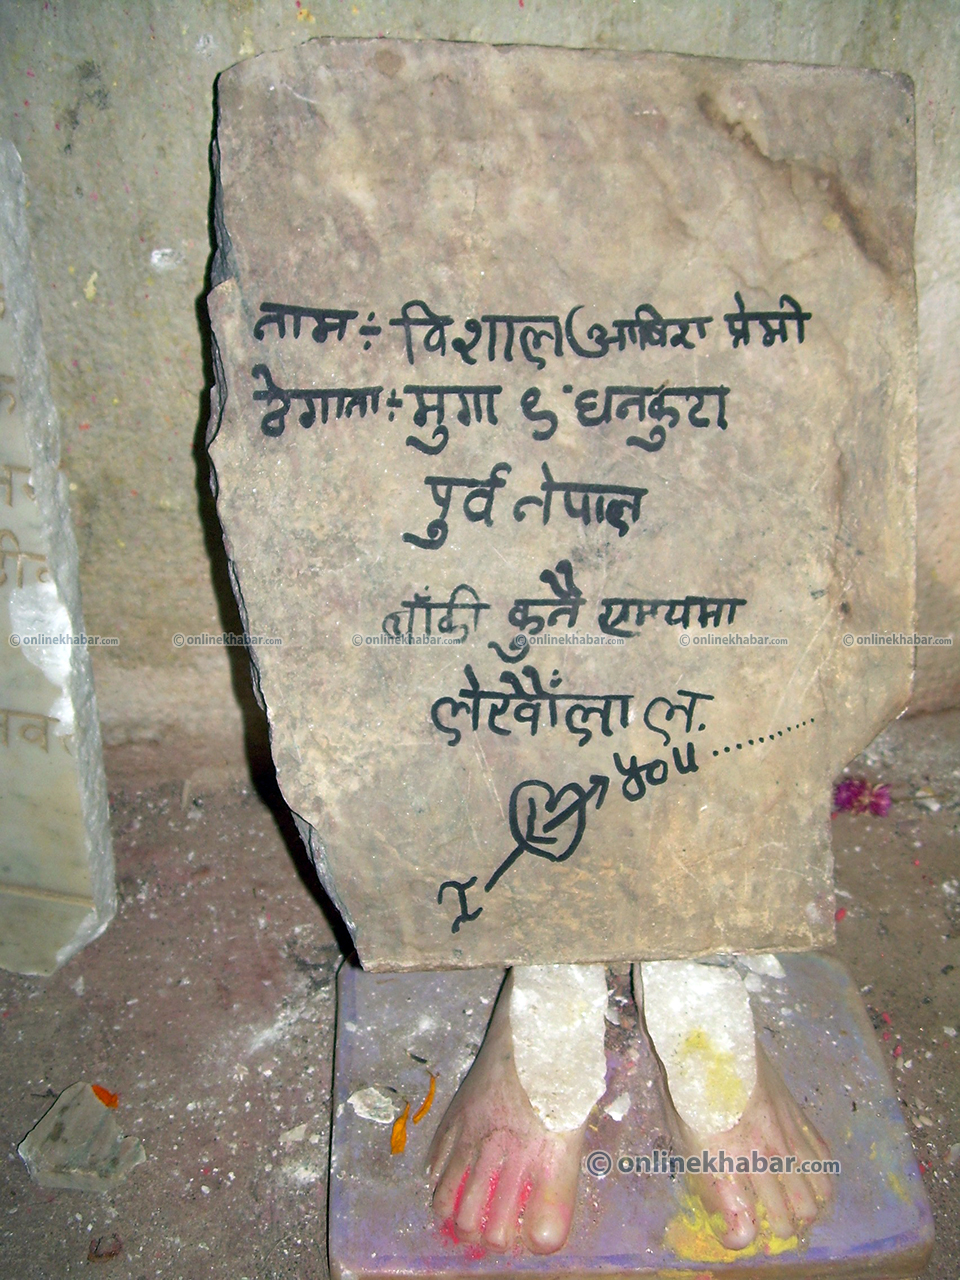 नामः- विशाल (आविरा प्रेमी
ठेगानाः- मुगा ९ धनकुटा
पुर्व नेपाल
बाँकी कुनै समयमा
लेखौंला ल.
I you..........
© onlinekhabar.com © onlinekhabar.com © onlinekhabar.com © onlinekhabar.com © onlinekhabar.com © onlinekhabar.com
© onlinekhabar.com